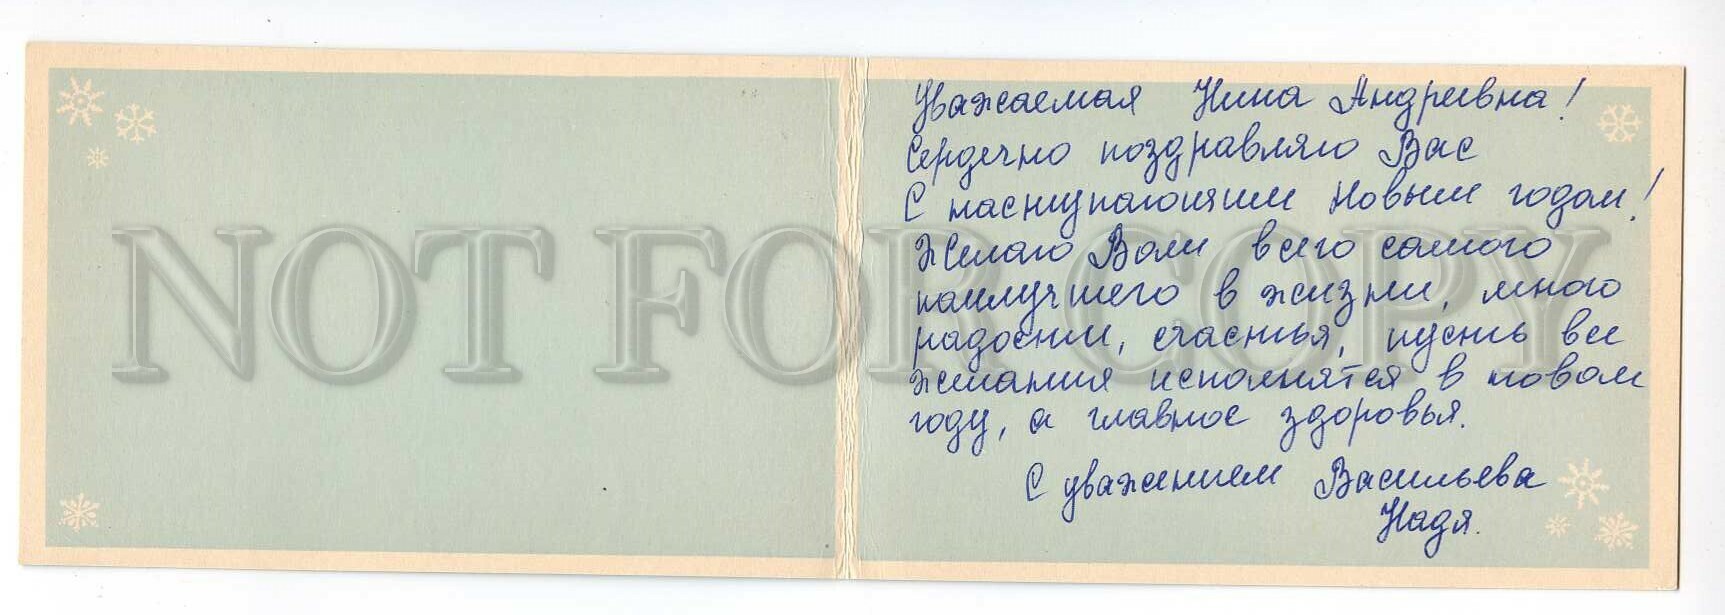 Уважаемая Нина Андреевна!
Сердечно поздравляю Вас
С наступающим Новым годом!
Желаю Вам всего самого
наилучшего в жизни, много
радости, счастья, пусть все
желания исполнятся в новом
году, а главное здоровья.
С уважением Васильева
Надя.
NOT FOR COPY